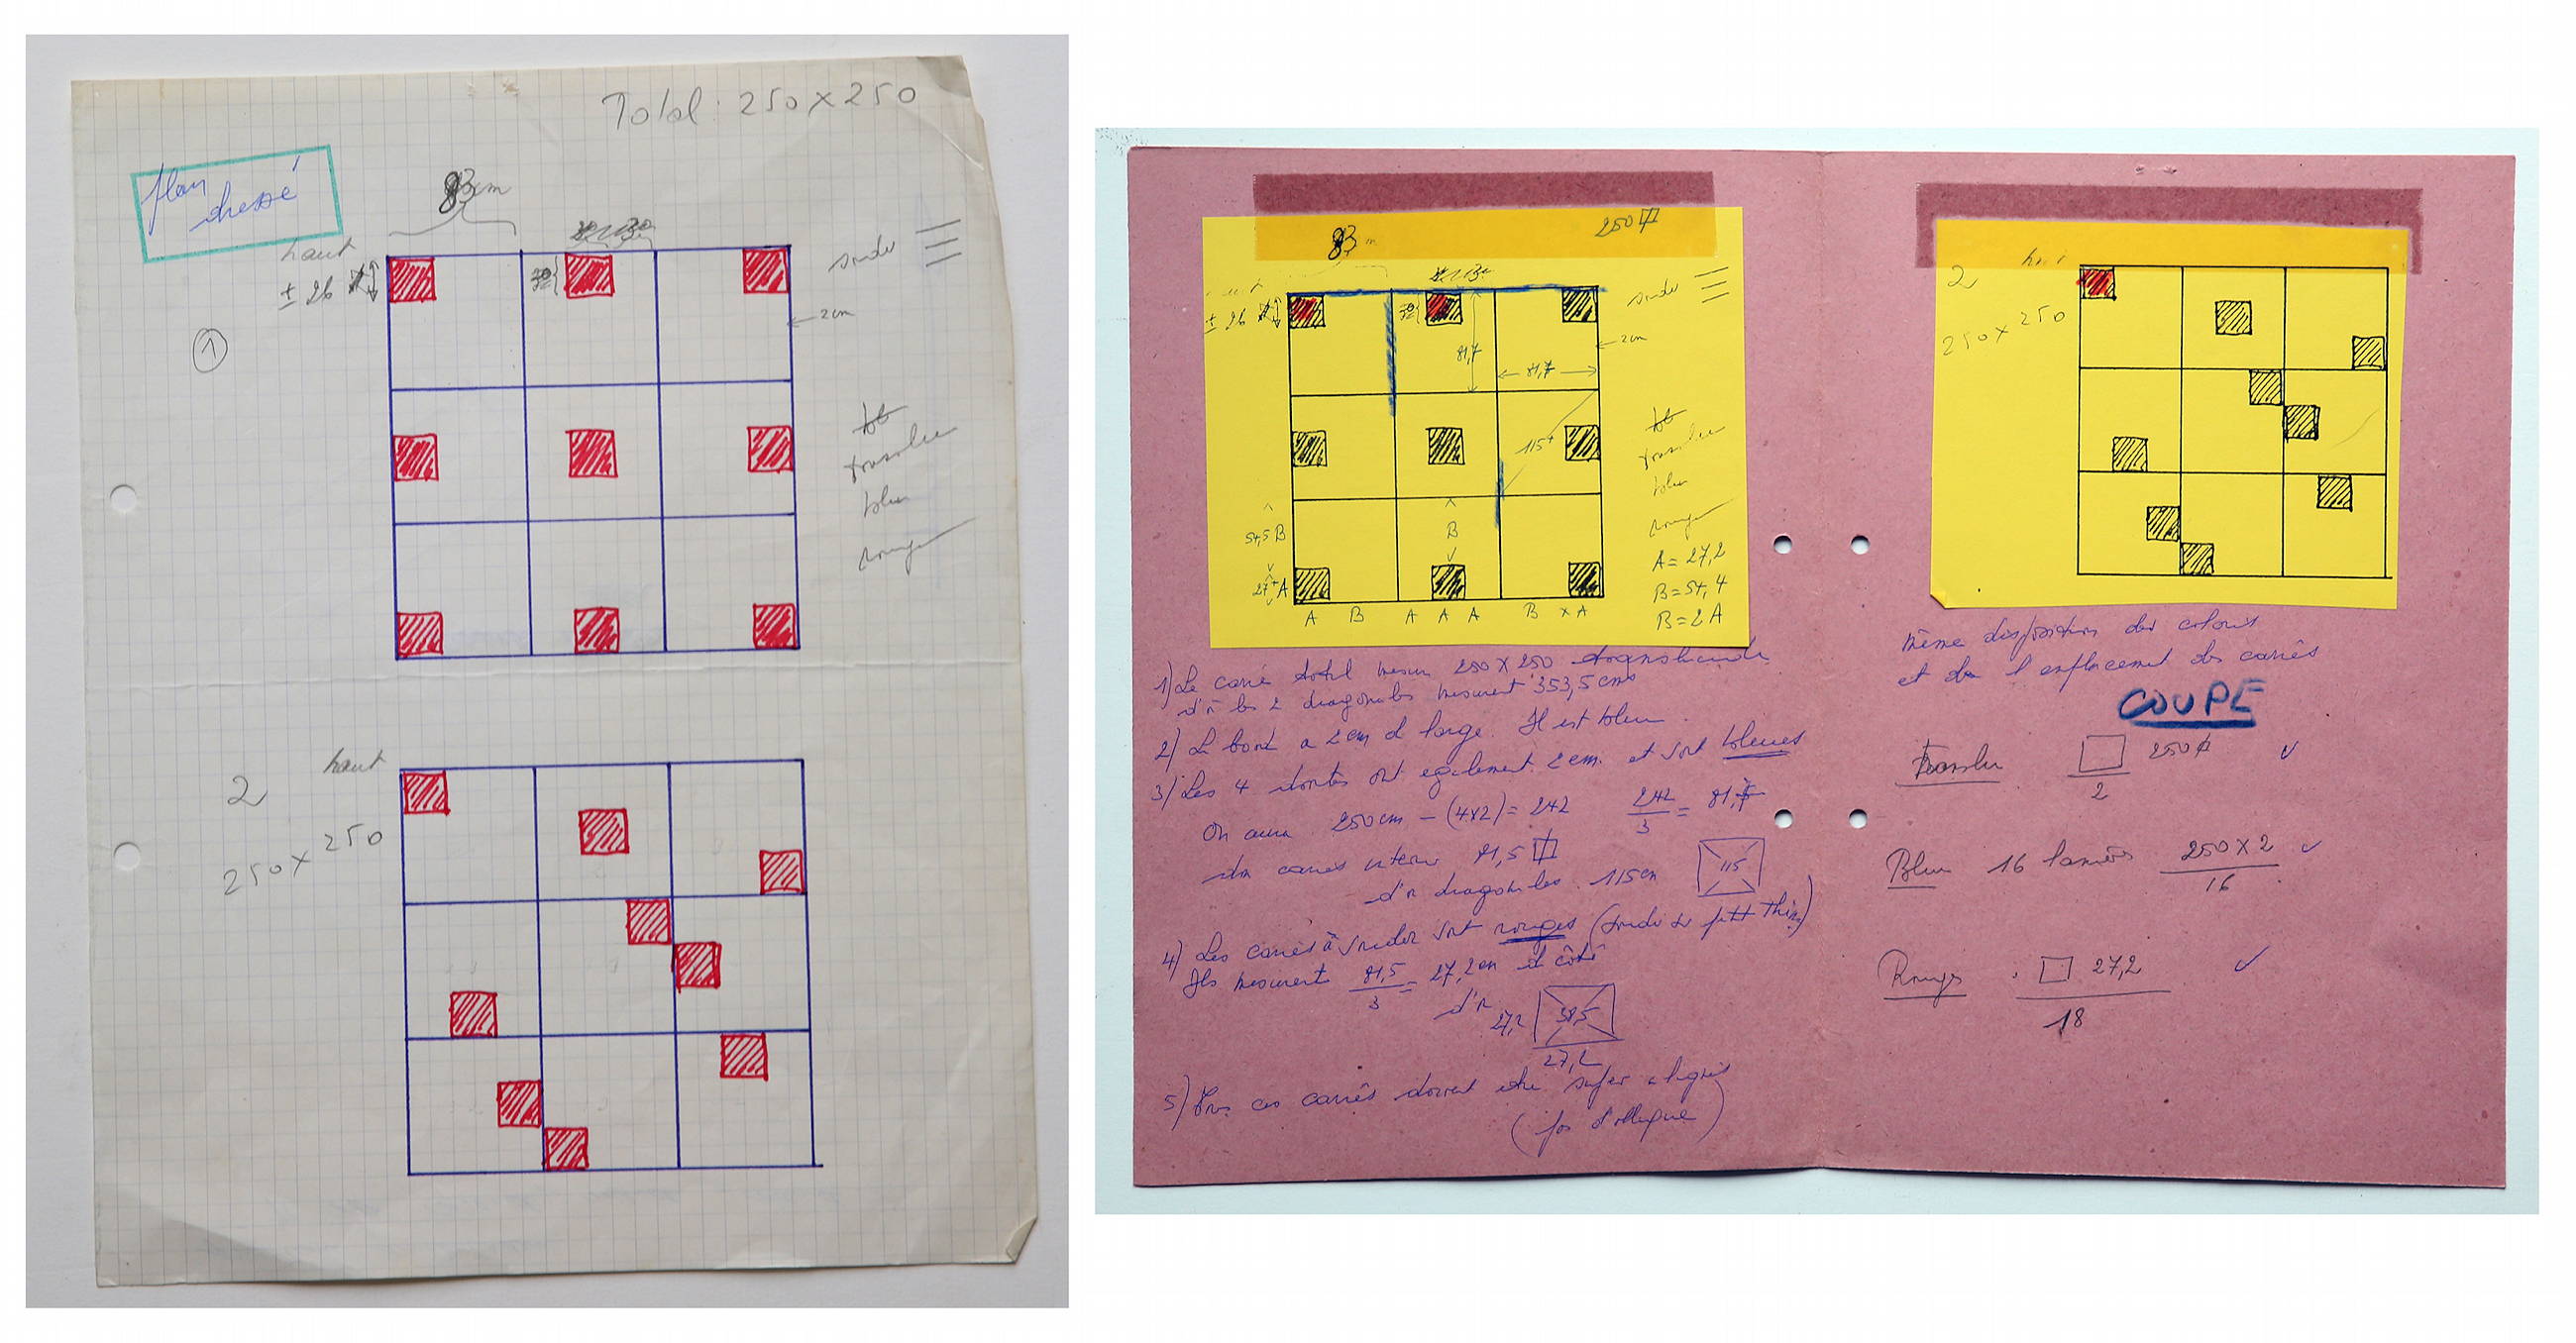 Total: 250 x 250
plan
83 cm
haut
± 26
souder
2cm
1
translu
bleu
rouge
2
haut
250 x 250
83
250
± 26
souder
2cm
81,7
81,7
115+
translu
bleu
rouge
54,5 B
B
27+ A
A = 27,2
B = 54,4
B = 2A
A B A A A B x A
1) Le carré total mesure 250 x 250
d'où les 2 diagonales mesurent 353,5 cm
2) Le bord a 2 cm de large. Il est bleu.
3) Les 4 ont également 2 cm. et sont bleues
On aura 250 cm - (4x2) = 242 242/3 = 81,7
carrés internes 81,5
d'où diagonales 115 cm 115
4) Les carrés à souder sont rouges
Ils mesurent 81,5/3 = 27,2 cm de côté
d'où 27,2 38,5
27,2
5) Tous ces carrés doivent être
2
250 x 250
même disposition des coloris
et de l'emplacement des carrés
COUPE
Translu 250
2
Bleu 16 lanières 250 x 2
16
Rouge 27,2
18